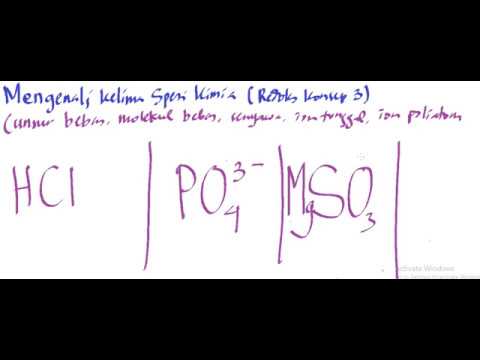 Mengenali kelima spesi kimia (Redoks konsep 3)
(unsur bebas, molekul bebas, senyawa, ion tunggal, ion poliatom
HCl | PO₄³⁻ | MgSO₃ |
Activate Windows